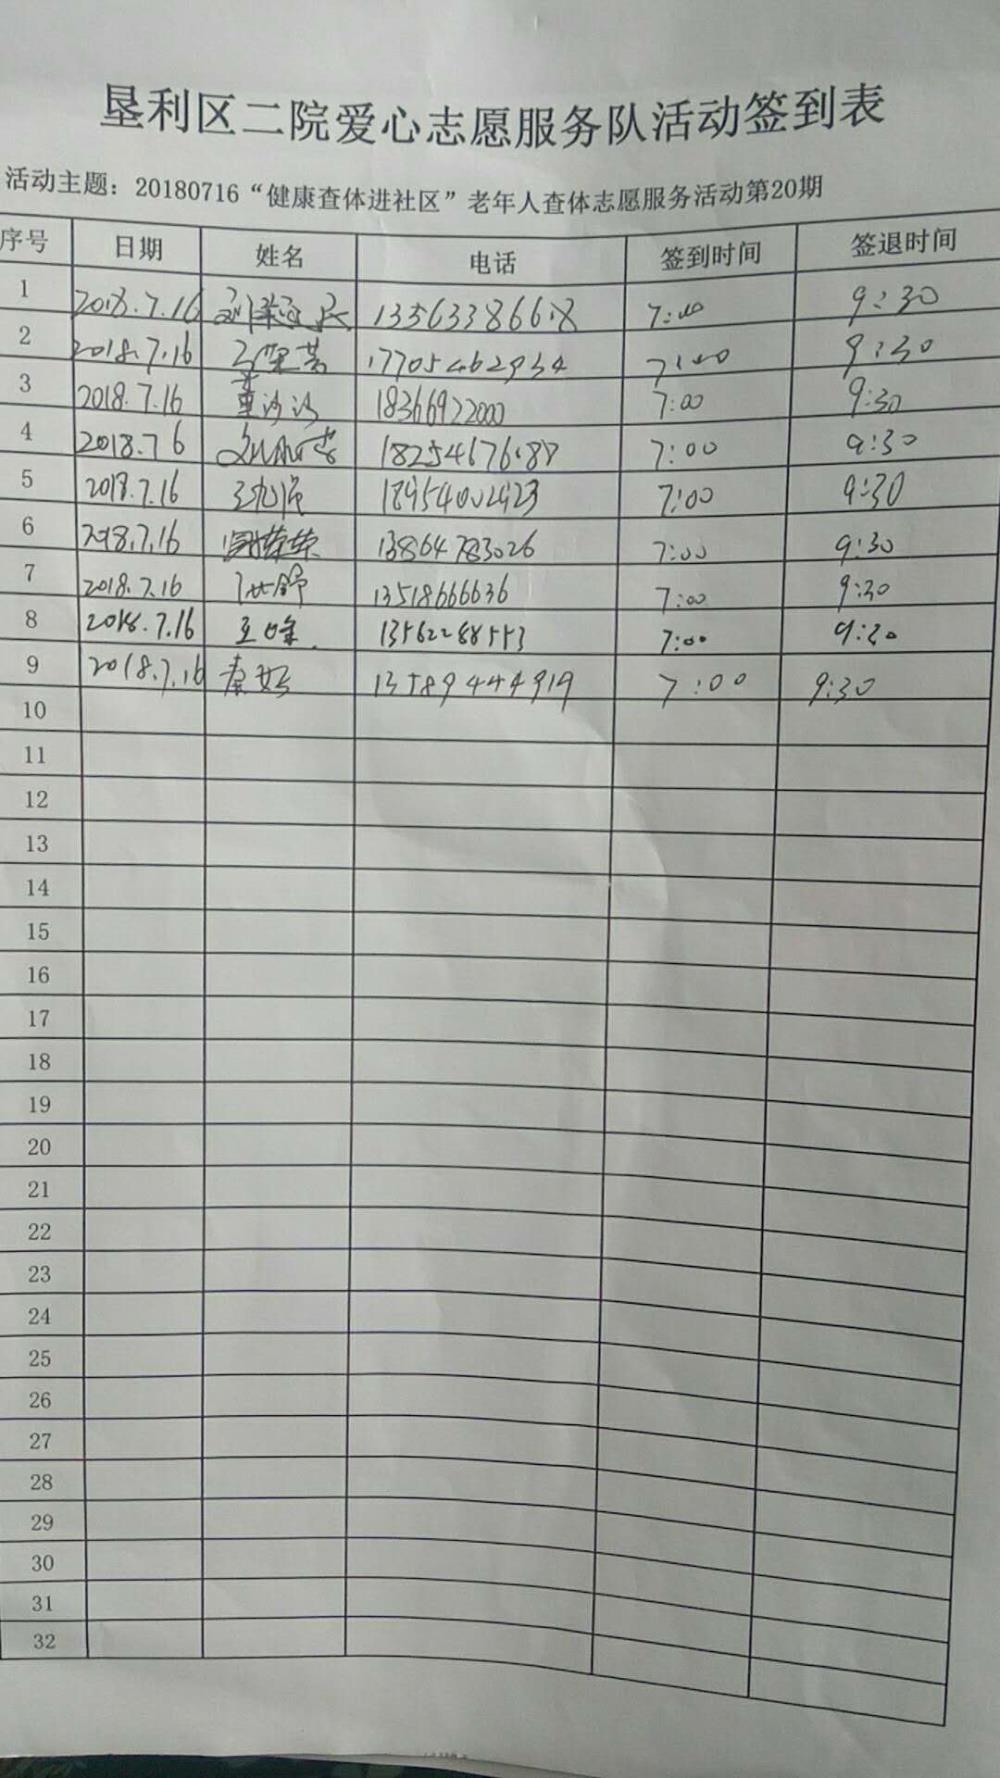 垦利区二院爱心志愿服务队活动签到表
活动主题：20180716“健康查体进社区”老年人查体志愿服务活动第20期
序号 日期 姓名 电话 签到时间 签退时间
1 2018.7.16 13563386618 7:00 9:30
2 2018.7.16 17705462934 7:00 9:30
3 2018.7.16 董沙沙 18366922000 7:00 9:30
4 2018.7 6 18254676188 7:00 9:30
5 2018.7.16 18954002423 7:00 9:30
6 2018.7.16 13864783026 7:00 9:30
7 2018.7.16 13518666636 7:00 9:30
8 2018.7.16 王峰 13562288553 7:00 9:30
9 2018.7.16 秦好 13589444919 7:00 9:30
10
11
12
13
14
15
16
17
18
19
20
21
22
23
24
25
26
27
28
29
30
31
32